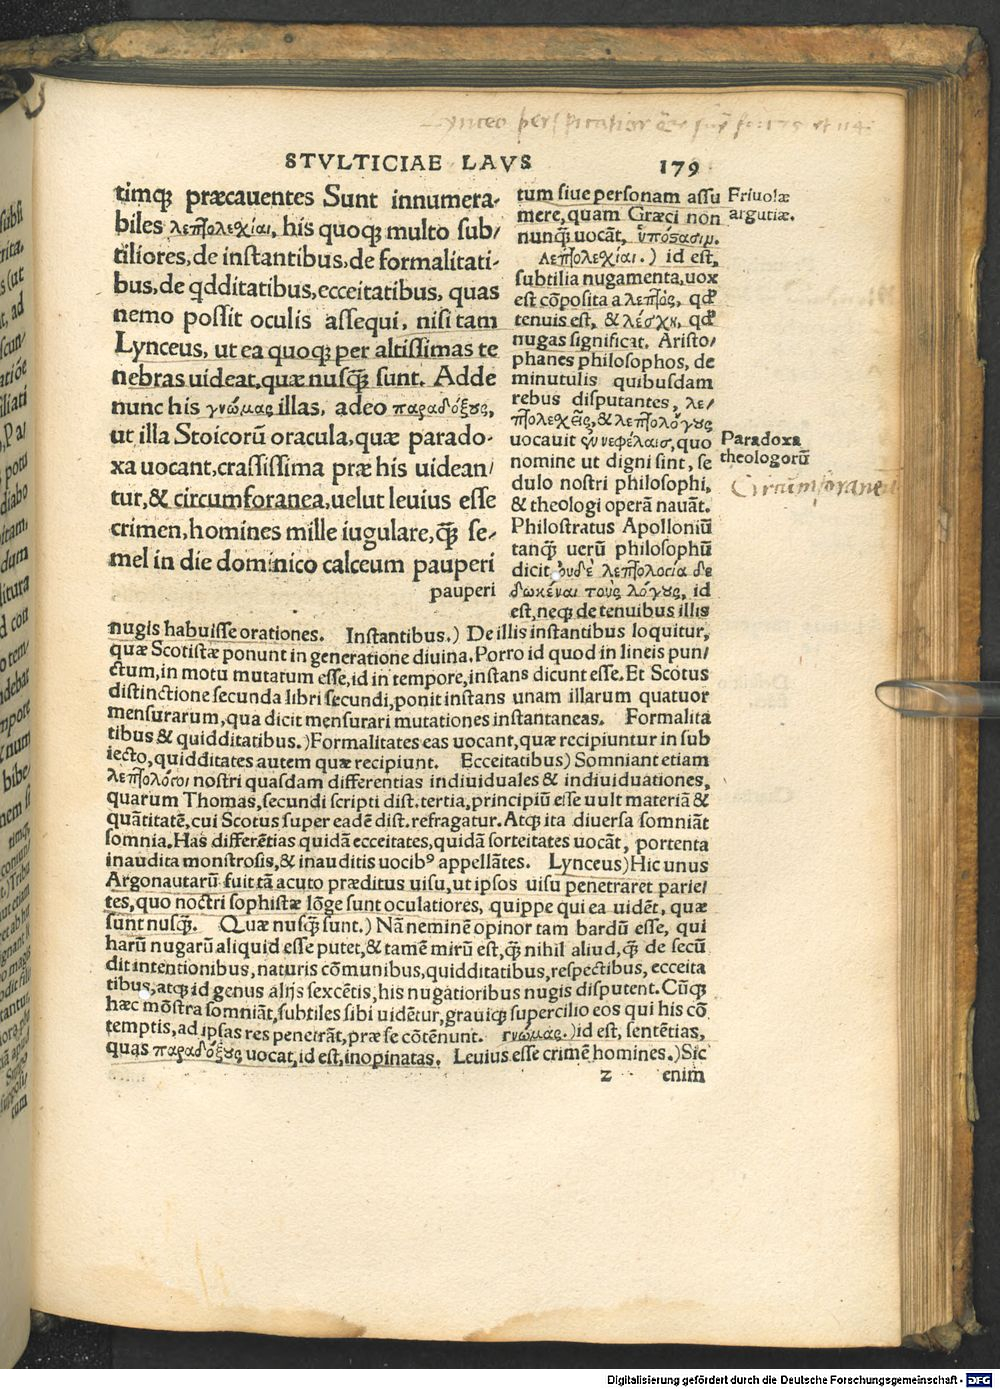 Lynceo perspicatior
STVLTICIAE LAVS 179
timq; præcauentes Sunt innumera-
biles λεπτολεχίαι, his quoq; multo sub/
tiliores, de instantibus, de formalitati-
bus, de qdditatibus, ecceitatibus, quas
nemo possit oculis assequi, nisi tam
Lynceus, ut ea quoq; per altissimas te
nebras uideat, quæ nusq̃ sunt. Adde
nunc his γνώμας illas, adeo παραδόξους,
ut illa Stoicorũ oracula, quæ parado-
xa uocant, crassissima præ his uidean/
tur, & circumforanea, uelut leuius esse
crimen, homines mille iugulare, q̃ se-
mel in die dominico calceum pauperi
pauperi
tum siue personam assu
mere, quam Græci non
nunq̃ uocãt, ὑπόστασιμ.
λεπτολεχίαι.) id est,
subtilia nugamenta, uox
est cõposita a λεπτὸς, qđ
tenuis est, & λέσχη, qđ
nugas significat. Aristo/
phanes philosophos, de
minutulis quibusdam
rebus disputantes, λε/
πτολεχεῖς, & λεπτολόγους
uocauit ἐν νεφέλαισ, quo
nomine ut digni sint, se
dulo nostri philosophi,
& theologi operã nauãt.
Philostratus Apolloniũ
tanq̃ uerũ philosophũ
dicit οὐδὲ λεπτολογία δε
δωκέναι τοὺς λόγους, id
est, neq; de tenuibus illis
Friuolæ
argutiæ.
Paradoxa
theologorũ
Circumforanea
nugis habuisse orationes. Instantibus.) De illis instantibus loquitur,
quæ Scotistæ ponunt in generatione diuina. Porro id quod in lineis pun/
ctum, in motu mutatum esse, id in tempore, instans dicunt esse. Et Scotus
distinctione secunda libri secundi, ponit instans unam illarum quatuor
mensurarum, qua dicit mensurari mutationes instantaneas. Formalita
tibus & quidditatibus.) Formalitates eas uocant, quæ recipiuntur in sub
iecto, quidditates autem quæ recipiunt. Ecceitatibus) Somniant etiam
λεπτολόγοι nostri quasdam differentias indiuiduales & indiuiduationes,
quarum Thomas, secundi scripti dist. tertia, principiũ esse uult materiã &
quãtitatẽ, cui Scotus super eadẽ dist. refragatur. Atq; ita diuersa somniãt
somnia. Has differẽtias quidã ecceitates, quidã sorteitates uocãt, portenta
inaudita monstrosis, & inauditis uocibꝰ appellãtes. Lynceus) Hic unus
Argonautarũ fuit tã acuto præditus uisu, ut ipsos uisu penetraret parie/
tes, quo nostri sophistæ lõge sunt oculatiores, quippe qui ea uidẽt, quæ
sunt nusq̃. Quæ nusq̃ sunt.) Nã neminẽ opinor tam bardũ esse, qui
harũ nugarũ aliquid esse putet, & tamẽ mirũ est, q̃ nihil aliud, q̃ de secũ
dit intentionibus, naturis cõmunibus, quidditatibus, respectibus, ecceita
tibus, atq; id genus alijs sexcẽtis, his nugatioribus nugis disputent. Cũq;
hæc mõstra somniãt, subtiles sibi uidẽtur, grauiq; supercilio eos qui his cõ
temptis, ad ipsas res penetrãt, præ se cõtẽnunt. γνώμας.) id est, sentẽtias,
quas παραδόξους uocat, id est, inopinatas. Leuius esse crimẽ homines.) Sic
z enim
Digitalisierung gefördert durch die Deutsche Forschungsgemeinschaft - DFG